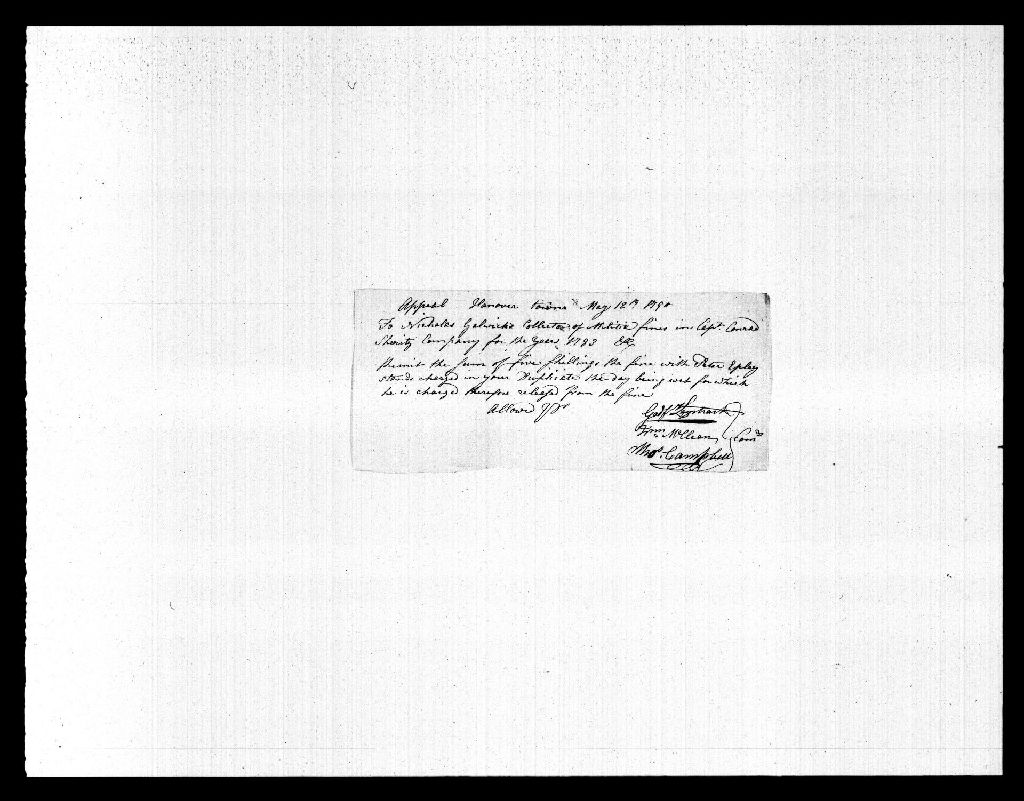 Appeal Hanover town May 12th
To Nicholas Gelwicks Collector of Militia fines in Capt Conrad
Sherits Company for the Year 1783 &c
Remit the sum of five shillings the fine with Peter Epley
stands charged in your Duplicate the day being wet for which
he is charged therefore releasd from the fine
Allowd
Godf
Wm McClean Com
Thos. Campbell